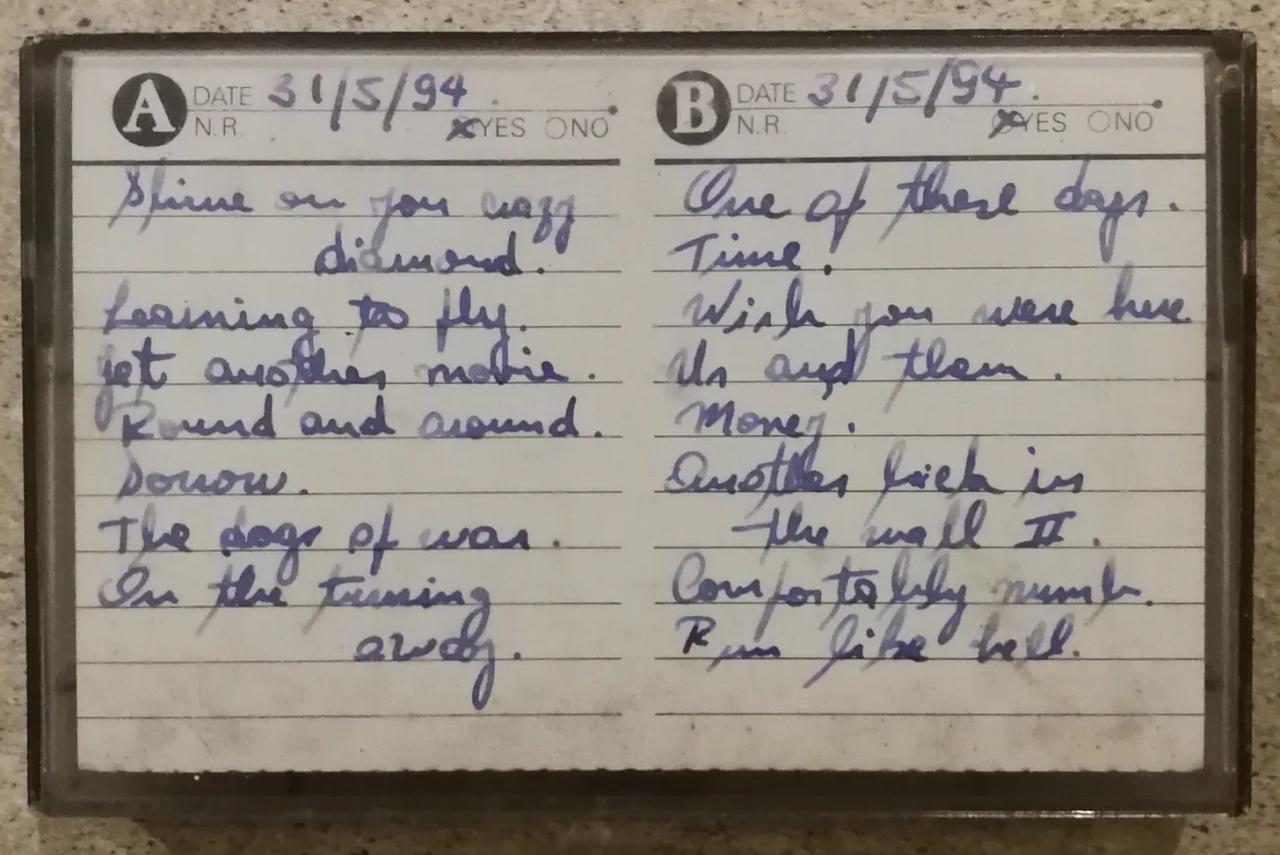 A DATE 31/5/94.
N.R. YES NO
Shine on you crazy
diamond.
Learning to fly.
Yet another movie.
Round and around.
Sorrow.
The dogs of war.
On the turning
away.
B DATE 31/5/94.
N.R. YES NO
One of these days.
Time.
Wish you were here.
Us and them.
Money.
Another brick in
the wall II.
Comfortably numb.
Run like hell.